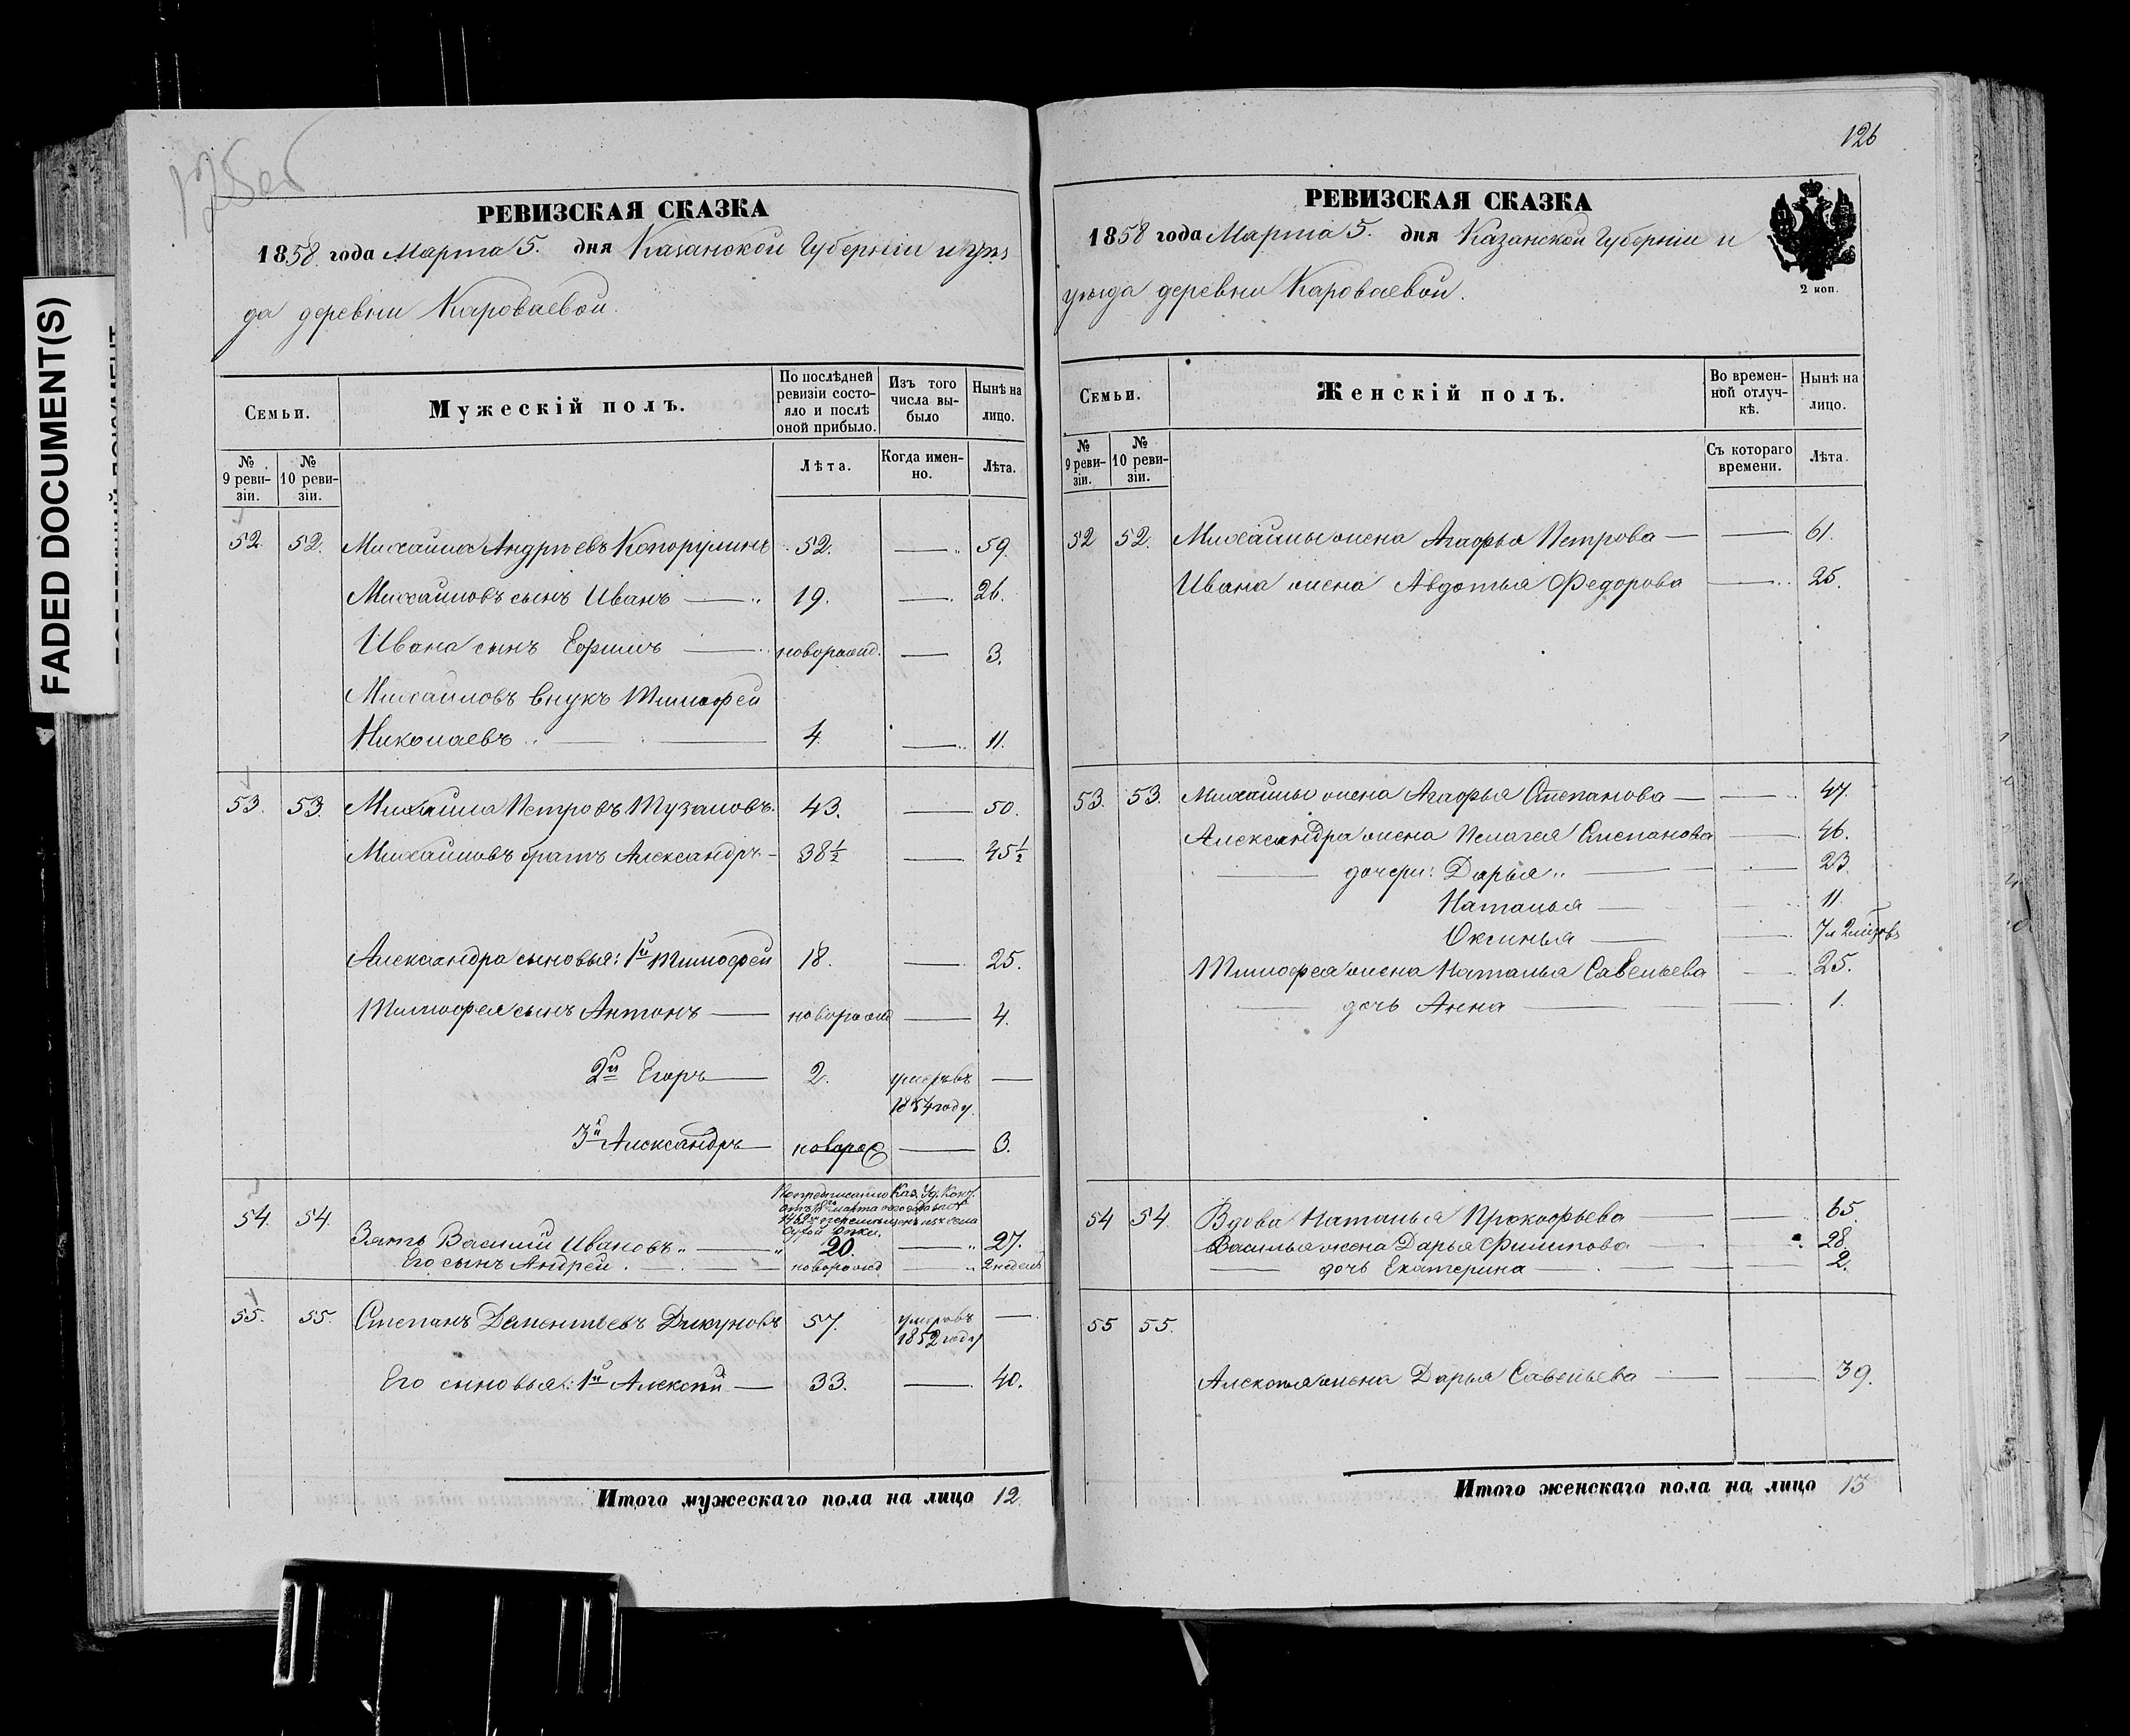 125об
РЕВИЗСКАЯ СКАЗКА
1858 года Марта 5. дня Казанской Губерніи и уѣз
да деревни Кароваевой.
Семьи.
Мужескій полъ.
По послѣдней ревизіи состояло и послѣ оной прибыло.
Изъ того числа выбыло
Нынѣ на лицо.
№ 9 ревизіи.
№ 10 ревизіи.
Лѣта.
Когда именно.
Лѣта.
52. 52. Михаила Андреевъ 52. — 59.
Михаиловъ сынъ Иванъ — 19. — 26.
Ивана сынъ Ефимъ — новорожд. — 3.
Михаиловъ внукъ Тимофей
Николаевъ — 4. — 11.
53. 53. Михаила Петровъ Тузаловъ. 43. — 50.
Михаиловъ братъ Александръ — 38½ — 45½
Александра сыновья: 1й Тимофей 18. — 25.
Тимофея сынъ Антонъ — новорожд — 4.
2й Егоръ — 2. умеръ въ —
1854 году.
3й Александръ — новорож — 3.
По предписанію Каз. Уд. Кон.
54. 54. Зять Василій Ивановъ — 20. — 27.
Его сынъ Андрей — новорожд — 2 недель
55. 55. Степанъ Дементьевъ Дикуновъ 57. умеръ въ —
1852 году
Его сыновья: 1й Алексѣй — 33. — 40.
Итого мужескаго пола на лицо 12.
126
РЕВИЗСКАЯ СКАЗКА
1858 года Марта 5. дня Казанской Губерніи и
уѣзда деревни Кароваевой.
2 коп.
Семьи.
Женскій полъ.
Во временной отлучкѣ.
Нынѣ на лицо.
№ 9 ревизіи.
№ 10 ревизіи.
Съ котораго времени.
Лѣта.
52 52. Михайлы жена Агафья Петрова — — 61.
Ивана жена Авдотья Федорова — 25.
53. 53. Михайлы жена Агафья Степанова — — 47.
Александра жена Пелагея Степанова — 46.
— дочери: Дарья — — 23.
Наталья — 11.
Оксинья — — 7 и 2 мѣсяцовъ
Тимофея жена Наталья Савельева — 25.
— дочь Анна — — 1.
54 54. Вдова Наталья Прокофьева — — 65.
Василья жена Дарья Филипова — 28.
— дочь Екатерина — — 2.
55 55.
Алексѣя жена Дарья Савельева — — 39.
Итого женскаго пола на лицо 13
FADED DOCUMENT(S)